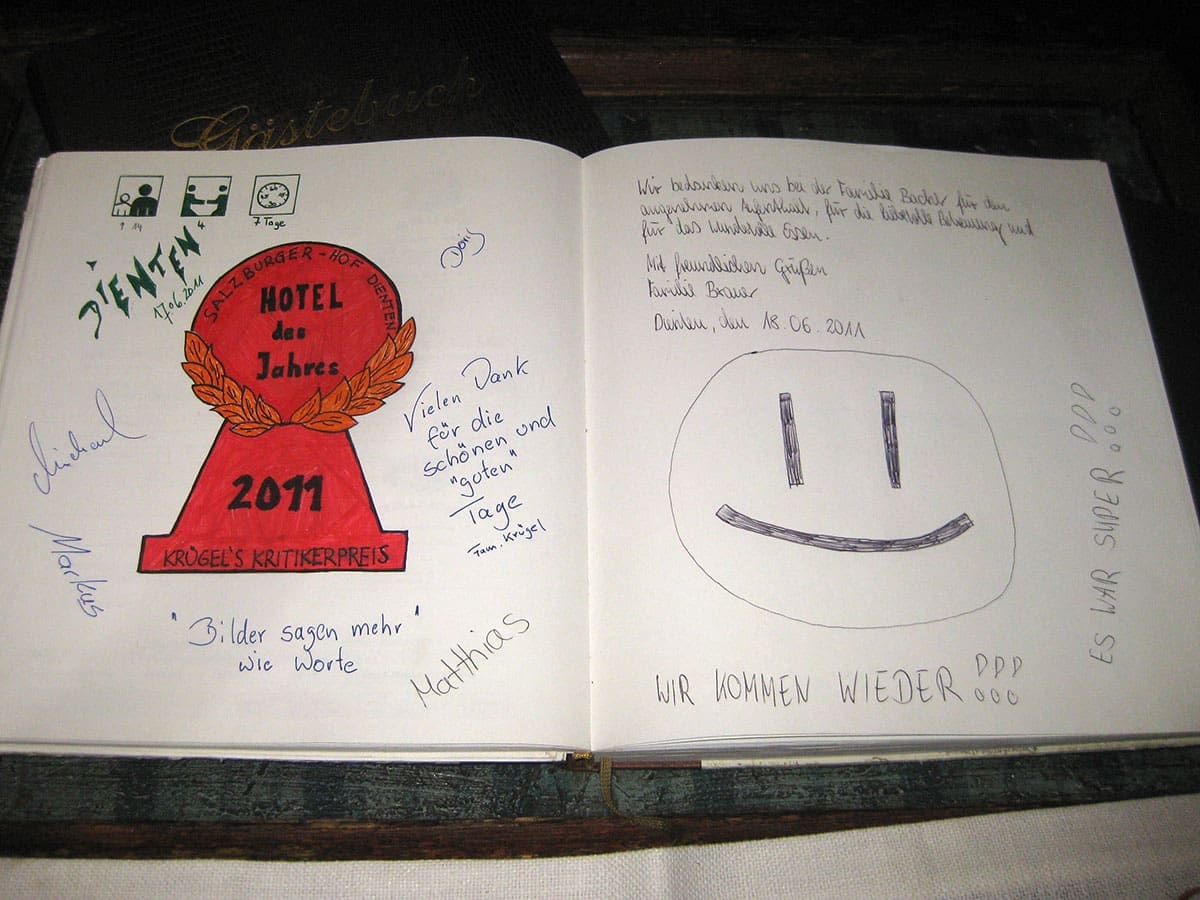 Gästebuch
9 14
4
7 Tage
DIENTEN
17.06.2011
SALZBURGER-HOF DIENTEN
HOTEL
des
Jahres
2011
KRÜGEL'S KRITIKERPREIS
Doris
Michael
Markus
Vielen Dank
für die
schönen und
"goten"
Tage
Fam. Krügel
"Bilder sagen mehr"
wie Worte
Matthias
Wir bedanken uns bei der Familie Bacher für den
angenehmen Aufenthalt, für die liebevolle Betreuung und
für das wundervolle Essen.
Mit freundlichen Grüßen
Familie Brauer
Dienten, den 18.06.2011
ES WAR SUPER !!!
WIR KOMMEN WIEDER !!!